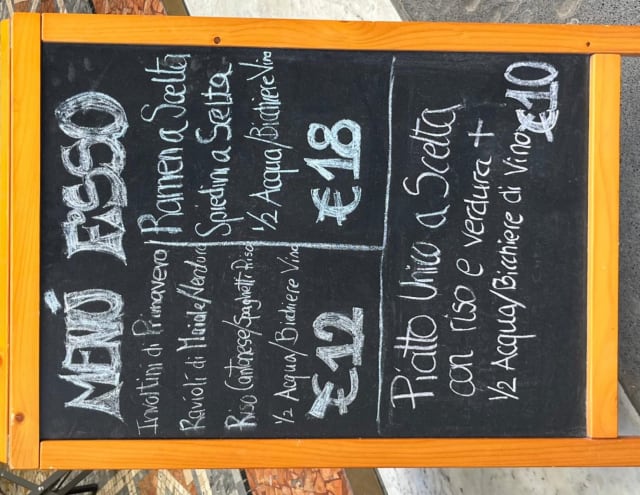 MENÙ FISSO
Involtini di Primavera/
Ravioli di Maiale/Verdura
Riso Cantonese/Spaghetti Riso
½ Acqua/Bichiere Vino
€12
Ramen a Scelta
Spiedini a Selta
½ Acqua/Bichiere Vino
€18
Piatto Unico a Scelta
con riso e verdura +
½ Acqua/Bichiere di Vino
€10